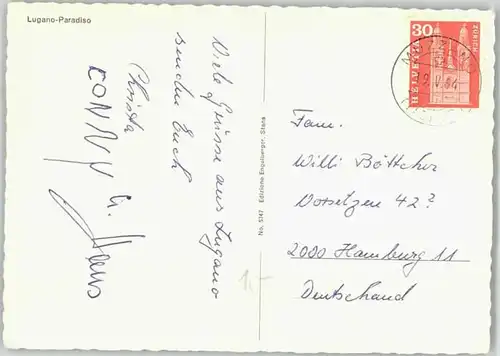 Lugano-Paradiso
Viele Grüsse aus Lugano
senden Euch
Christa
CONNY u. Hans
No. 5747 Edizione Engelberger, Stans
30
HELVETIA
ZÜRICH
Fam.
Willi Böttcher
Dovsetzen 42?
2000 Hamburg 11
Deutschand
1,-